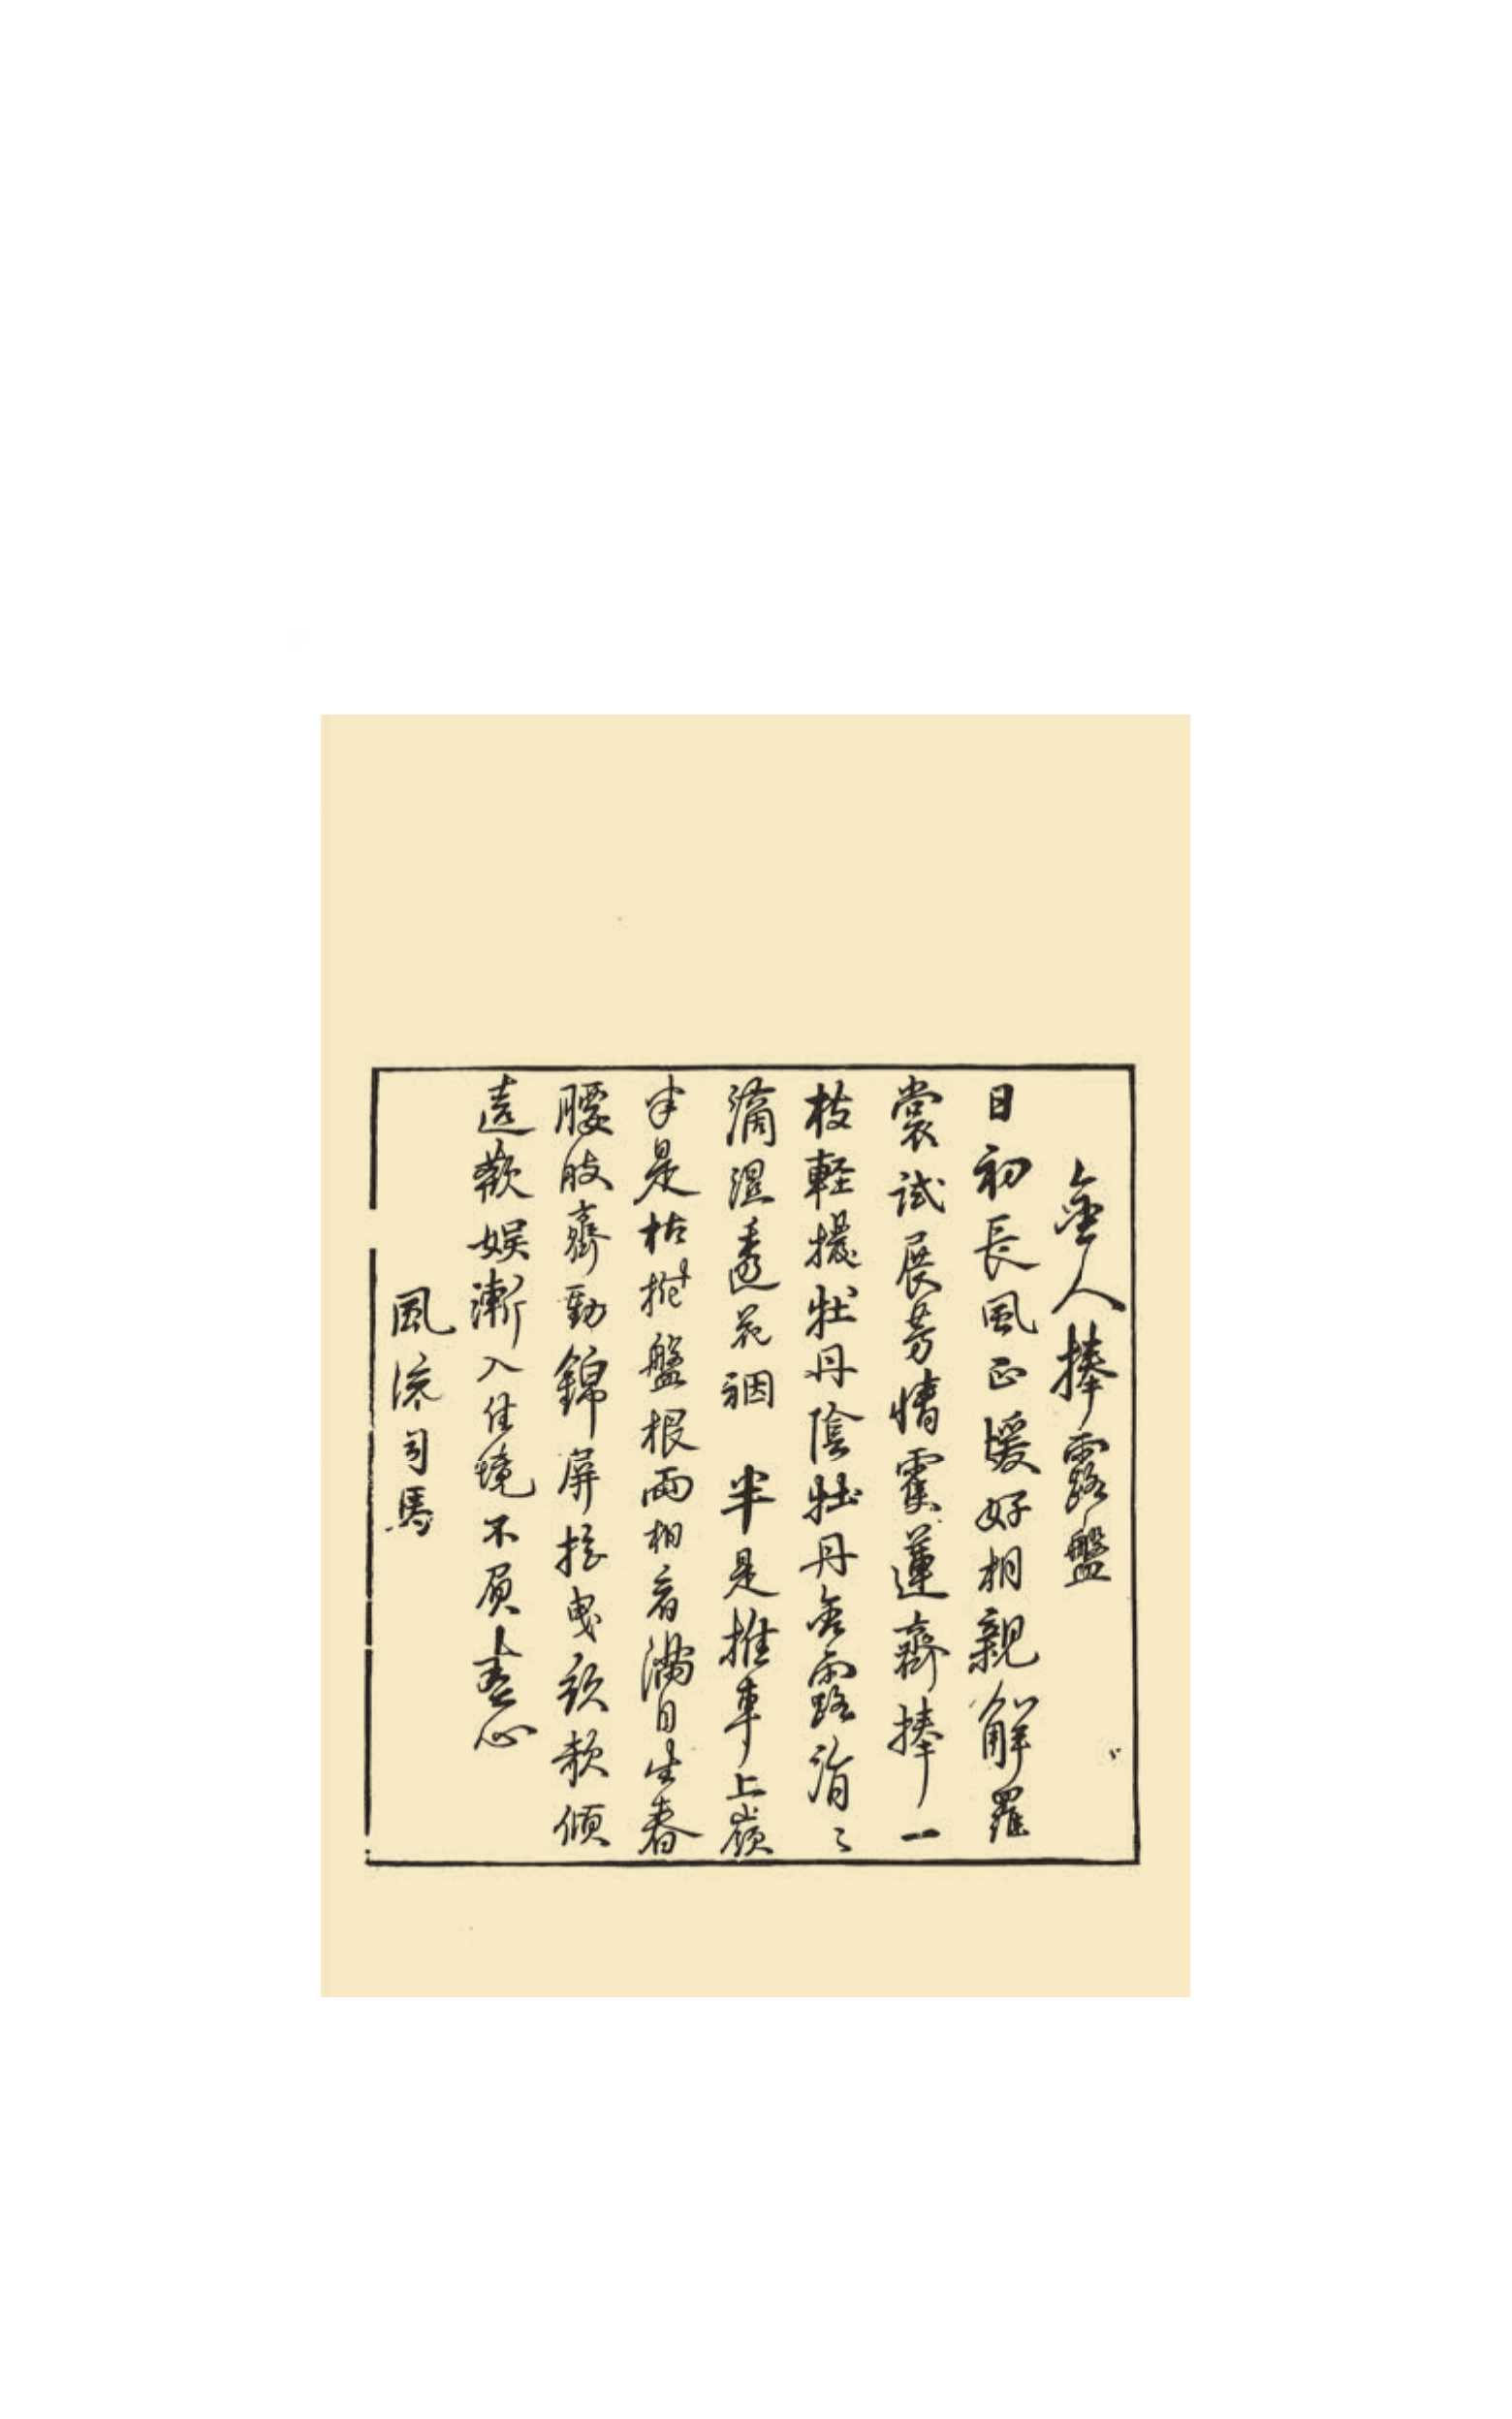 金人捧露盤
日初長風正暖好相親解羅
裳試展芳情雙蓮齊捧一
枝輕撥牡丹陰牡丹含露涓〻
滴濕透花裀　半是推車上嶺
半是枯樹盤根兩相看滿目生春
腰肢齊動錦屏搖曳欲攲傾
這歡娛漸入佳境不負春心
風流司馬